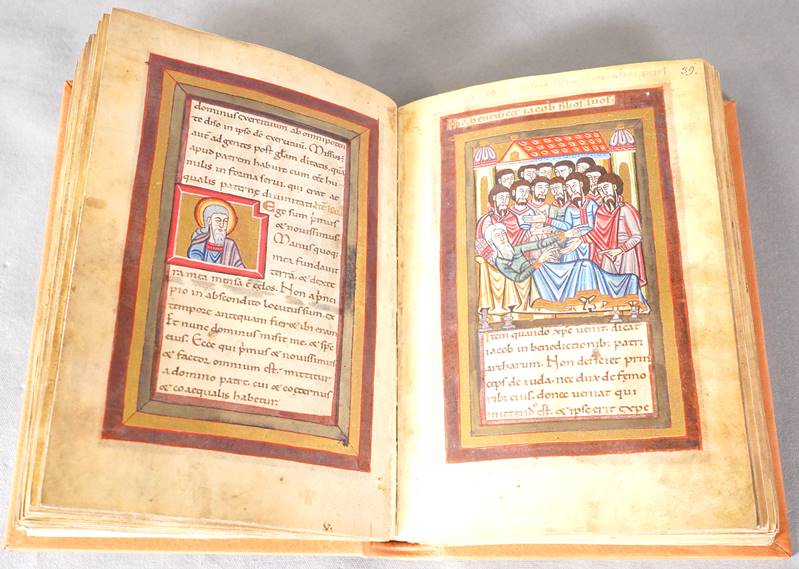 dominus exercituum ab omnipoten
te dño in ipso dõ exercituũ. Missus
aut ad gentes post glam ditatis, quã
apud patrem habuit. cum eet hu
milis in forma servi, qui erat ac
qualis patri in divinitati
Ego sum p̃mus
& novissimus
Manus quoq;
mea fundavit
terrã. & dexte
ra mea mensa ẽ cęlos. Non a p̃nci
pio in abscondito locutus sum. ex
tempore antequam fier& ibi eram.
Et nunc dominus misit me. & sp̃c
eius. Ecce qui p̃mus & novissimus
& factor omnium est. mittitur
a domino patre. cui & coeternus
& coaequalis habetur.
39.
benedicit iacob filios suos.
Item quando xp̃c venit. dicat
iacob in benedictionib; patri
archarum. Non deficiet prin
ceps de iuda. nec dux de femo
rib; eius. donec veniat qui
mittend' est. & ipse erit expe